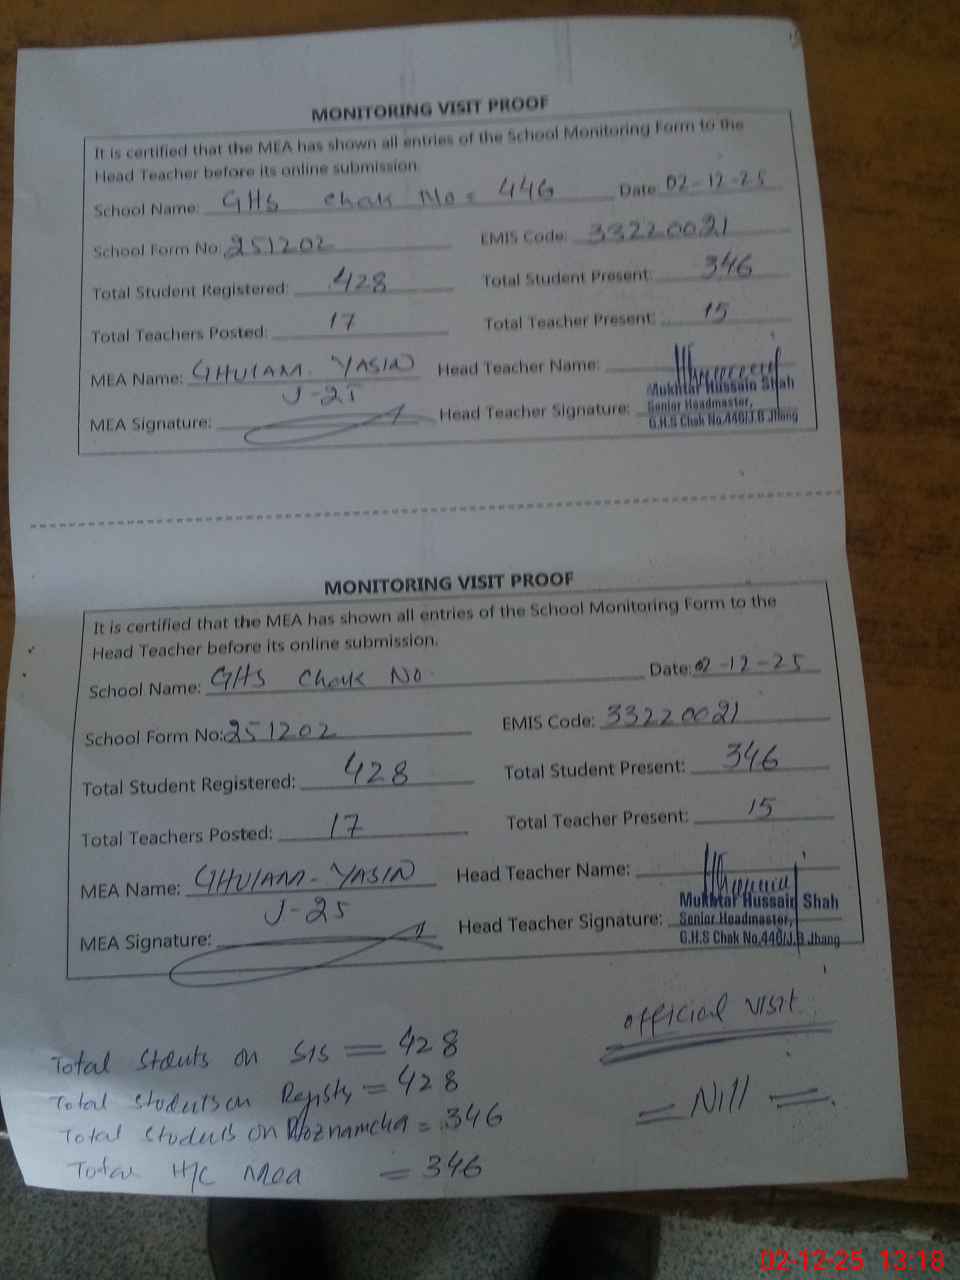 MONITORING VISIT PROOF
It is certified that the MEA has shown all entries of the School Monitoring Form to the
Head Teacher before its online submission.
School Name: GHS Chak No = 446 Date: 02-12-25
School Form No: 251202 EMIS Code: 33220021
Total Student Registered: 428 Total Student Present: 346
Total Teachers Posted: 17 Total Teacher Present: 15
MEA Name: GHULAM YASIN Head Teacher Name:
J-25
Mukhtar Hussain Shah
MEA Signature: Head Teacher Signature: Senior Headmaster,
G.H.S Chak No.446/J.B Jhang
MONITORING VISIT PROOF
It is certified that the MEA has shown all entries of the School Monitoring Form to the
Head Teacher before its online submission.
School Name: GHS Chak No. Date: 02-12-25
School Form No: 251202 EMIS Code: 33220021
Total Student Registered: 428 Total Student Present: 346
Total Teachers Posted: 17 Total Teacher Present: 15
MEA Name: GHULAM-YASIN Head Teacher Name:
J-25
Mukhtar Hussain Shah
MEA Signature: Head Teacher Signature: Senior Headmaster,
G.H.S Chak No.446/J.B Jhang
official visit
Total Stduts on SIS = 428
Total Students on Registr = 428
= Nill =.
Total Students on Roznamcha = 346
Total H/C Mea = 346
02-12-25 13:18